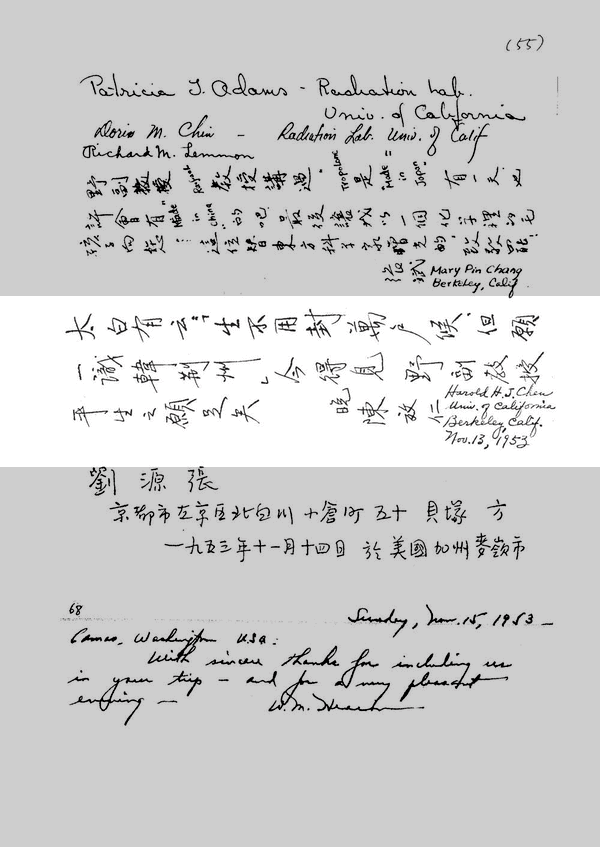 (55)
Patricia J. Adams - Radiation Lab.
Univ. of California
Doris M. Chin - Radiation Lab. Univ. of Calif
Richard M. Lemmon
野副教授 教授講過 "Tropolone" 是 "Made in Japan" 有一天也
許會有 "Made in China" 的吧 最後讓我以一個化学裡的毛
孩子向於 這位替東方科学家增光的 致敬呢!
Mary Pin Chang
Berkeley, Calif
太白有云:"生不用封萬户候,但願
一識韓荆州" 今得見 野副教授
平生之願足矣 晚 陳 啟 仁
Harold H. J. Chen
Univ. of California
Berkeley, Calif.
Nov. 13, 1953
劉 源 張
京都市左京区北白川小倉町五十 貝塚 方
一九五三年十一月十四日 於美國加州麥嶺市
68
Sunday, Nov. 15, 1953 -
Camas, Washington U.S.A.
With sincere thanks for including us
in your trip - and for a very pleasant
evening -
W. M. Hearon